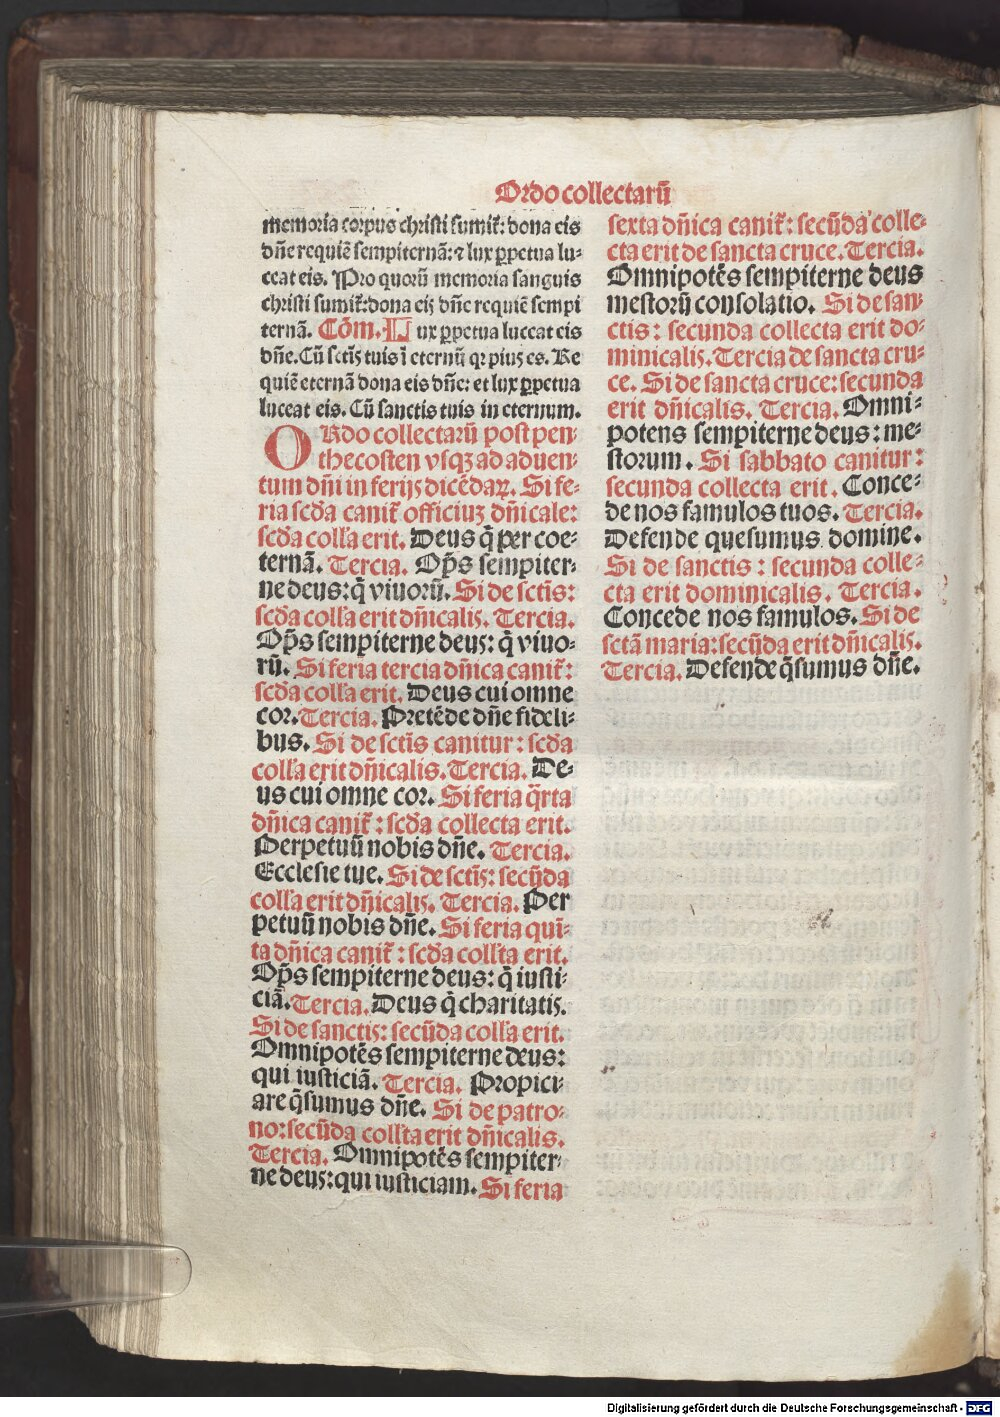 Ordo collectarū
memoria corpus christi sumit̃: dona eis
dñe requiē sempiternā: ⁊ lux ꝑpetua lu⸗
ceat eis. Pro quorū memoria sanguis
christi sumit̃: dona eis dñe requiē sempi
ternā. Cōm. Lux ꝑpetua luceat eis
dñe. Cū sctīs tuis ī eternū qꝛ pius es. Re
quiē eternā dona eis dñe: et lux ꝑpetua
luceat eis. Cū sanctis tuis in eternum.
ORdo collectarū post pen⸗
thecosten vsqꝫ ad aduen⸗
tum dñi in ferijs dicēdaꝝ. Si fe⸗
ria scd̃a canit̃ officiuꝫ dñicale:
scd̃a coll'a erit. Deus q̃ per coe⸗
ternā. Tercia. Op̃s sempiter⸗
ne deus: q̃ viuorū. Si de sctīs:
scd̃a coll'a erit dñicalis. Tercia.
Op̃s sempiterne deus: q̃ viuo⸗
rū. Si feria tercia dñica canit̃:
scd̃a coll'a erit. Deus cui omne
cor. Tercia. Pretēde dñe fideli⸗
bus. Si de sctīs canitur: scd̃a
coll'a erit dñicalis. Tercia. De⸗
us cui omne cor. Si feria q̃rta
dñica canit̃: scd̃a collecta erit.
Perpetuū nobis dñe. Tercia.
Ecclesie tue. Si de sctīs: secūda
coll'a erit dñicalis. Tercia. Per
petuū nobis dñe. Si feria qui⸗
ta dñica canit̃: scd̃a coll'ta erit.
Op̃s sempiterne deus: q̃ iusti⸗
ciā. Tercia. Deus q̃ charitatis.
Si de sanctis: secūda coll'a erit.
Omnipotēs sempiterne deus:
qui iusticiā. Tercia. Propici⸗
are q̃sumus dñe. Si de patro⸗
no: secūda coll'ta erit dñicalis.
Tercia. Omnipotēs sempiter⸗
ne deus: qui iusticiam. Si feria
sexta dñica canit̃: secūda colle⸗
cta erit de sancta cruce. Tercia.
Omnipotēs sempiterne deus
mestorū consolatio. Si de san⸗
ctis: secunda collecta erit do⸗
minicalis. Tercia de sancta cru⸗
ce. Si de sancta cruce: secunda
erit dñicalis. Tercia. Omni⸗
potens sempiterne deus: me⸗
storum. Si sabbato canitur:
secunda collecta erit. Conce⸗
de nos famulos tuos. Tercia.
Defende quesumus domine.
Si de sanctis: secunda colle⸗
cta erit dominicalis. Tercia.
Concede nos famulos. Si de
sctā maria: secūda erit dñicalis.
Tercia. Defende q̃sumus dñe.
Digitalisierung gefördert durch die Deutsche Forschungsgemeinschaft - DFG